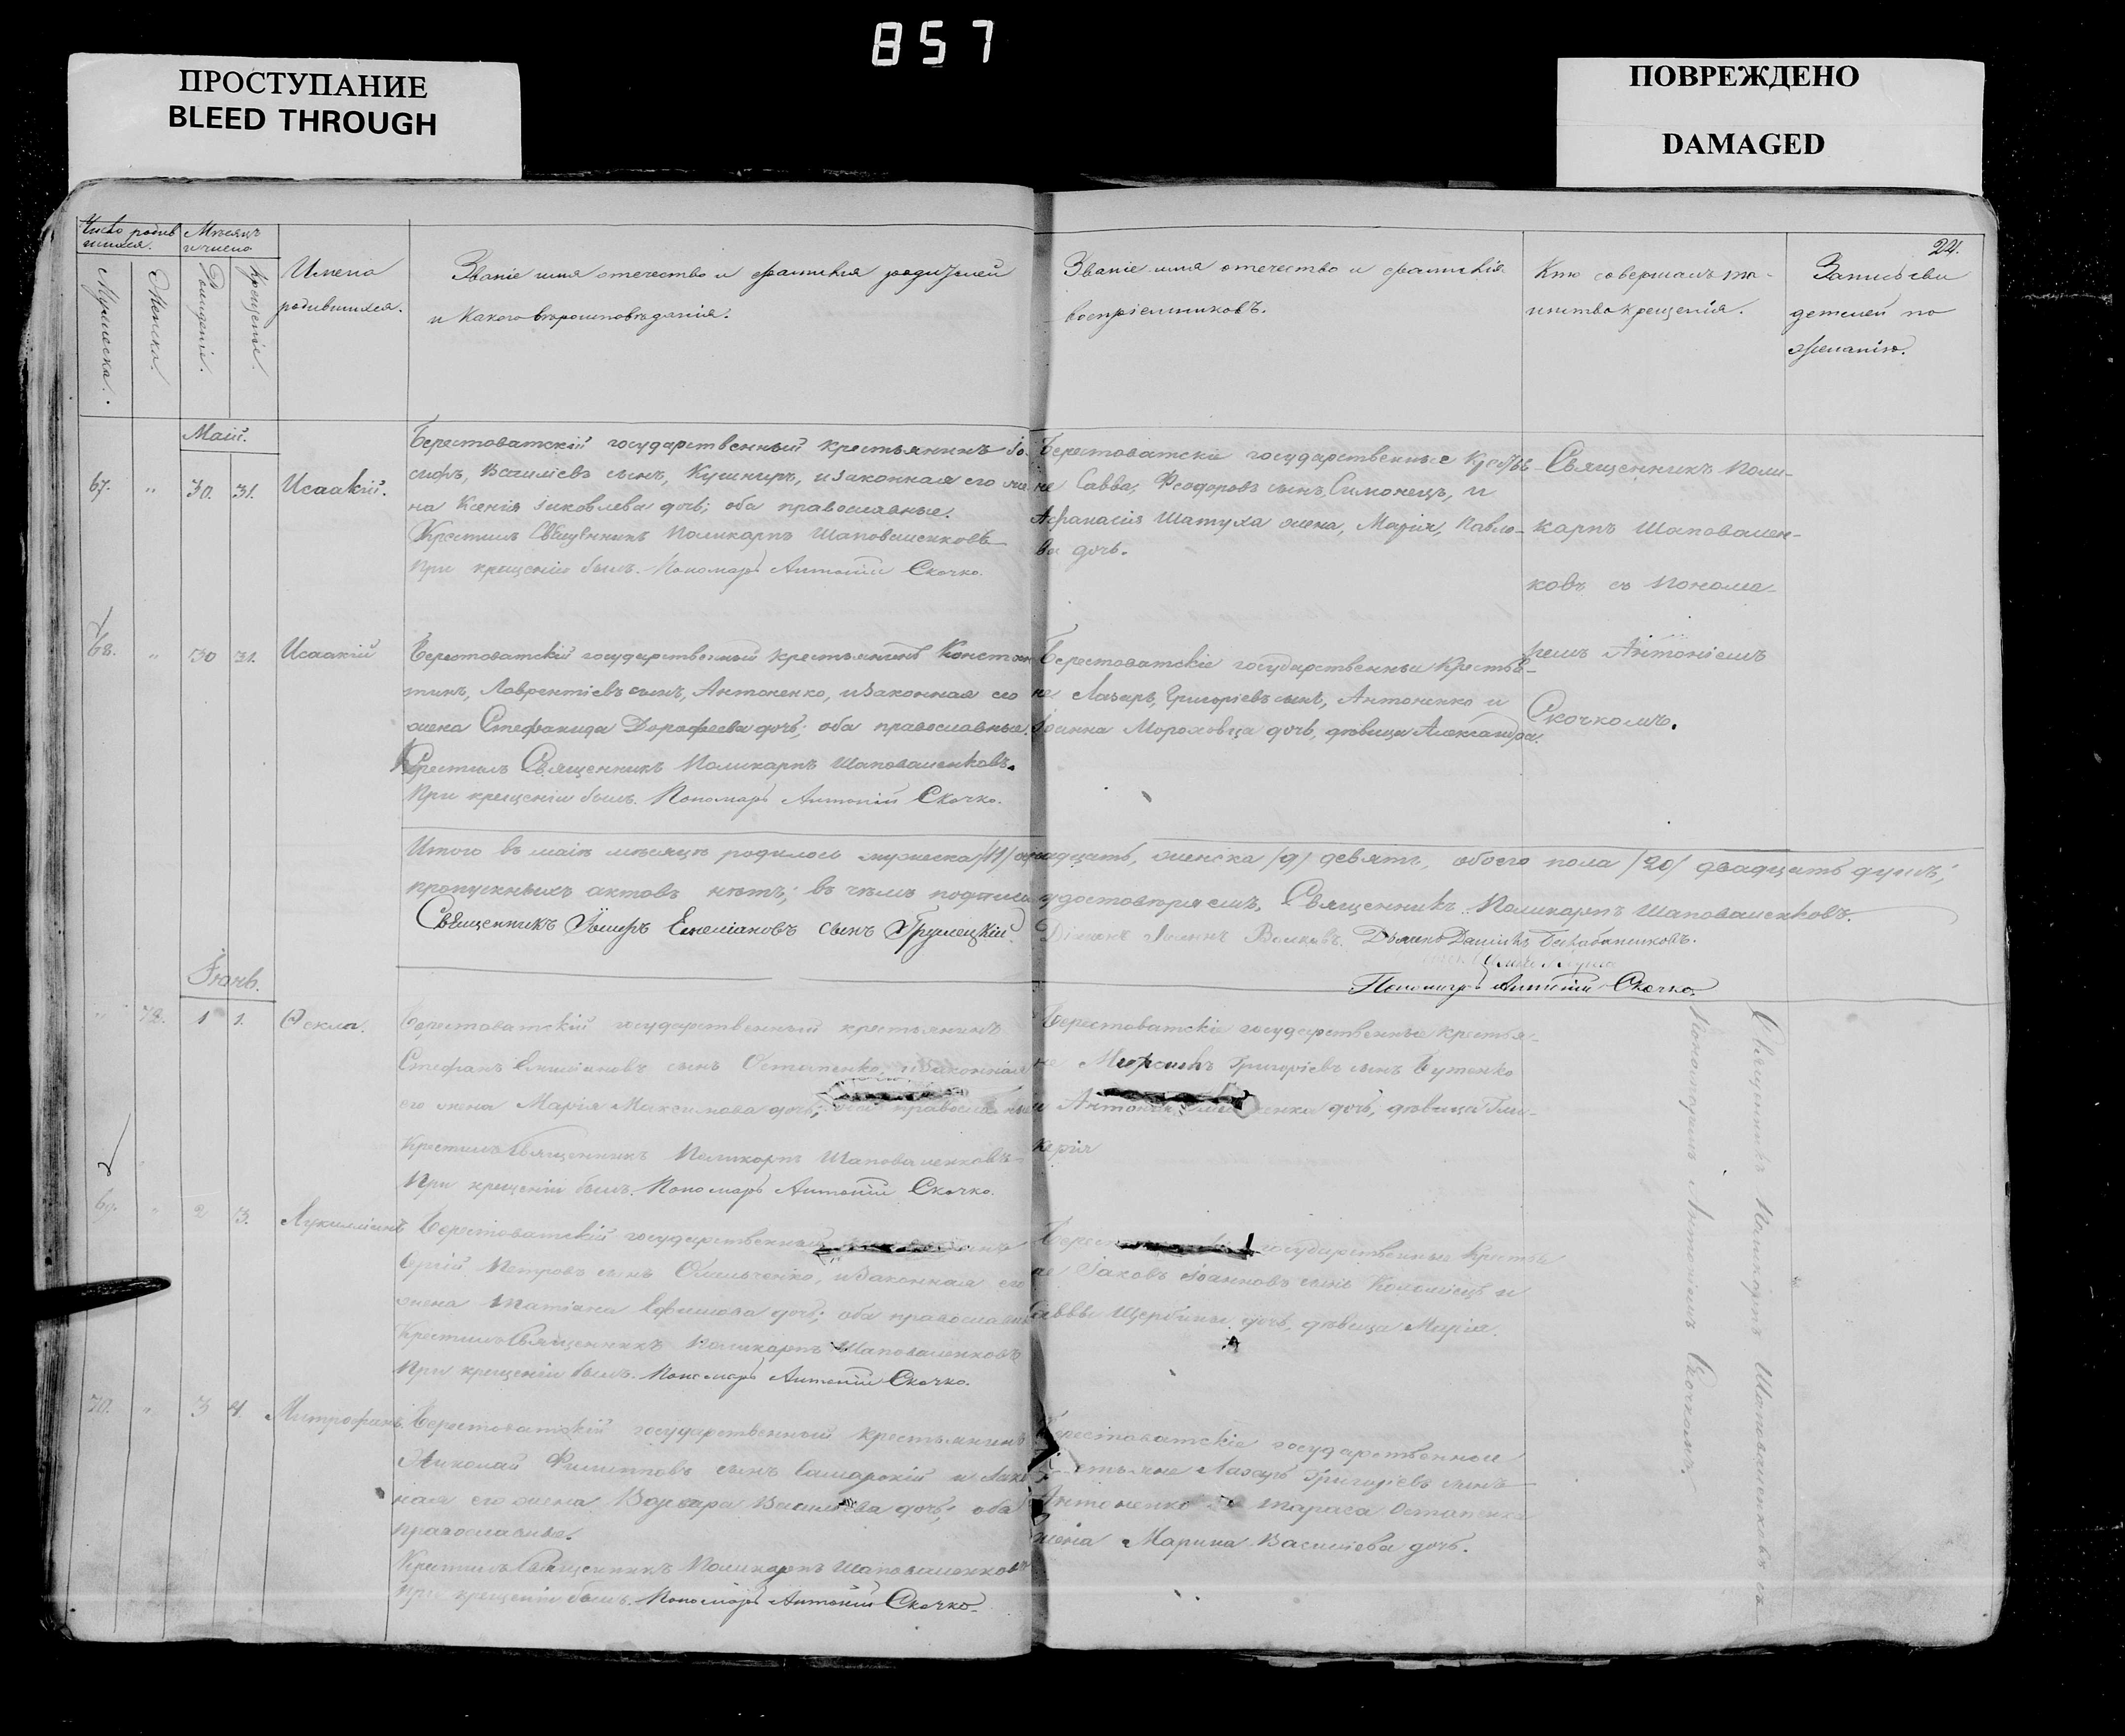 857
ПРОСТУПАНИЕ
BLEED THROUGH
ПОВРЕЖДЕНО
DAMAGED
24.
Число родив
шихся.
Мѣсяцъ
и число
Мужеска.
Женска.
Рожденія.
Крещенія.
Имена
родившихся.
Званіе имя отечество и фамилія родителей
и какого вѣроисповѣданія.
Званіе имя отечество и фамилія
воспріемниковъ.
Кто совершалъ та-
инство крещенія.
Запись сви
детелей по
желанію.
Маій.
67. " 30. 31. Исаакій.
Берестоватскій государственный крестьянинъ Іо-
сифъ, Василіевъ сынъ, Кушниръ, и законная его же
на Ксенія Іаковлева дочь; оба православные.
Крестилъ Священникъ Поликарпъ Шаповаленковъ
При крещеніи былъ. Пономарь Антоній Скочко.
Берестоватскіе государственные крестья-
не Савва, Феодоровъ сынъ, Симонецъ, и
Афанасія Шатуха жена, Марія, Павло-
ва дочь.
Священникъ Поли-
карпъ Шаповален-
ковъ съ понома-
ремъ Антоніемъ
Скочкомъ.
68. " 30 31. Исаакій
Берестоватскій государственный крестьянинъ Констан
тинъ, Лаврентіевъ сынъ, Антоненко, и законная его
жена Стефанида Дорофеева дочь; оба православные.
Крестилъ Священникъ Поликарпъ Шаповаленковъ.
При крещеніи былъ. Пономарь Антоній Скочко.
Берестоватскіе государственные крестья-
не Лазарь, Григоріевъ сынъ, Антоненко и
Іоанна Мороховца дочь, дѣвица Александра.
Итого въ маіѣ мѣсяцѣ родилось мужеска /11/ одинадцать, женска /9/ девять, обоего пола /20/ двадцать душъ;
пропускныхъ актовъ нѣтъ; въ чемъ подписью удостовѣряемъ. Священникъ Поликарпъ Шаповаленковъ.
Священникъ Емеліановъ сынъ
Діаконъ Іоаннъ Волковъ. Даніилъ
Пономарь Антоній Скочко.
Іюнь.
" 72. 1 1. Ѳекла.
Берестоватскій государственный крестьянинъ
Стефанъ Емиліановъ сынъ Остапенко, и законная
его жена Марія Максимова дочь; оба православные
Крестилъ Священникъ Поликарпъ Шаповаленковъ
При крещеніи былъ. Пономарь Антоній Скочко.
Берестоватскіе государственные крестья-
не Григоріевъ сынъ Бутенко
и дочь, дѣвица Гли-
керія
69. " 2 3. Лукилліанъ
Берестоватскій государственный
Сергій Петровъ сынъ Омельченко, и законная его
жена Татіана Ефимова дочь; оба православн
Крестилъ Священникъ Поликарпъ Шаповаленковъ
При крещеніи былъ. Пономарь Антоній Скочко.
государственные крестья
не Іаковъ Іоанновъ сынъ Коломіецъ и
Саввы Щербины дочь, дѣвица Марія.
70. " 3 4. Митрофанъ.
Берестоватскій государственный крестьянинъ
Николай Филипповъ сынъ Самарскій и закон
ная его жена Варвара Василіева дочь; оба
православные.
Крестилъ Священникъ Поликарпъ Шаповаленковъ
При крещеніи былъ. Пономарь Антоній Скочко.
Берестоватскіе государственные
крестьяне Лазарь Григоріевъ сынъ
Антоненко и Тараса Остапенка
жена Марина Василіева дочь.
Священникъ Поликарпъ Шаповаленковъ съ
Пономаремъ Антоніемъ Скочкомъ.